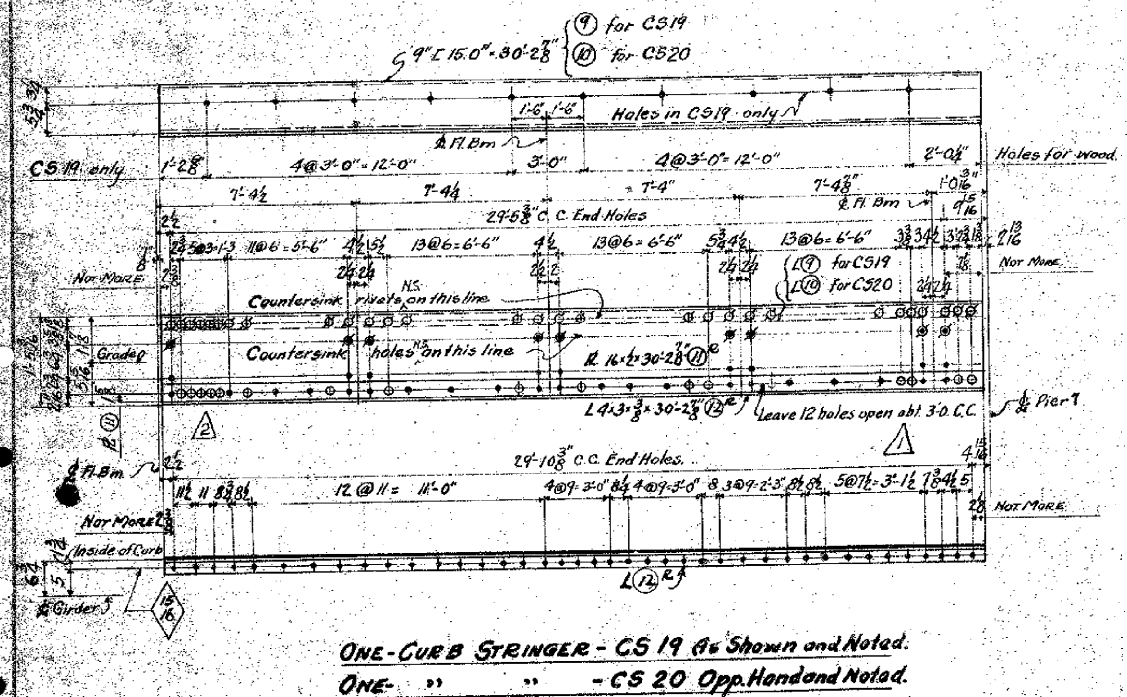 ⑨ for CS19
9" [ 15.0# = 30'-2⅞" ⑩ for CS20
5¾ 3¼
1'-6" 1'-6" Holes in CS19 only
℄ Fl. Bm
CS 19 only 1'-2⅝" 4@3'-0"=12'-0" 3'-0" 4@3'-0"=12'-0" 2'-0¼" Holes for wood.
7'-4½ 7'-4¼ = 7'-4" 7'-4⅞" 1'-0 3/16"
℄ Fl. Bm 9 5/16
2½ 29'-5⅜" C.C. End Holes
5@3=1'-3 11@6=5'-6" 4½ 5½ 13@6=6'-6" 4½ 13@6=6'-6" 5¾ 4½ 13@6=6'-6" 2 13/16
Not More 2¼ 2¼ 2¼ 2¼ L⑨ for CS19 ⅞ Not More
L⑩ for CS20 2¼ 2¼
N.S.
Countersink rivets on this line
Grade
N.S.
Countersink holes on this line
℄ 16×½×30'-2⅞" ⑪ R
L4×3×⅜×30'-2⅞" ⑫ R Leave 12 holes open abt. 3'-0 C.C. ℄ Pier 7
⑪
2 1
℄ Fl. Bm 2½ 29'-10⅜" C.C. End Holes. 4 15/16
11½ 11 8¾ 8½ 12@11= 11'-0" 4@9=3'-0" 8½ 4@9=3'-0" 8 3@9=2'-3" 8½ 8½ 5@7½=3'-1½ 7¾ 4½ 5
Not More 2⅛ Not More
Inside of Curb
6¾ 5 1¾
℄ Girder
15/16
L⑫ R
ONE-CURB STRINGER - CS 19 As Shown and Noted.
ONE- " " - CS 20 Opp. Hand and Noted.